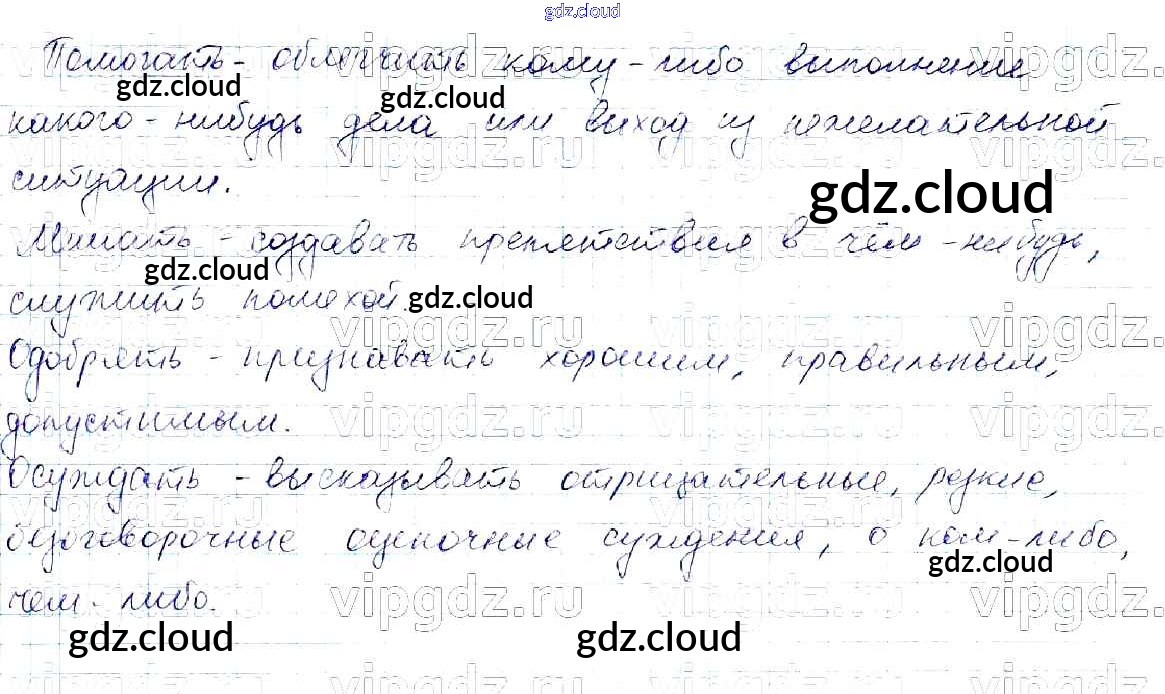 gdz.cloud
Помогать - облегчить кому-либо выполнение
какого-нибудь дела или выход из нежелательной
ситуации.
Мешать - создавать препятствия в чём-нибудь,
служить помехой.
Одобрять - признавать хорошим, правильным,
допустимым.
Осуждать - высказывать отрицательные, резкие,
безоговорочные оценочные суждения, о ком-либо,
чем-либо.
gdz.cloud gdz.cloud